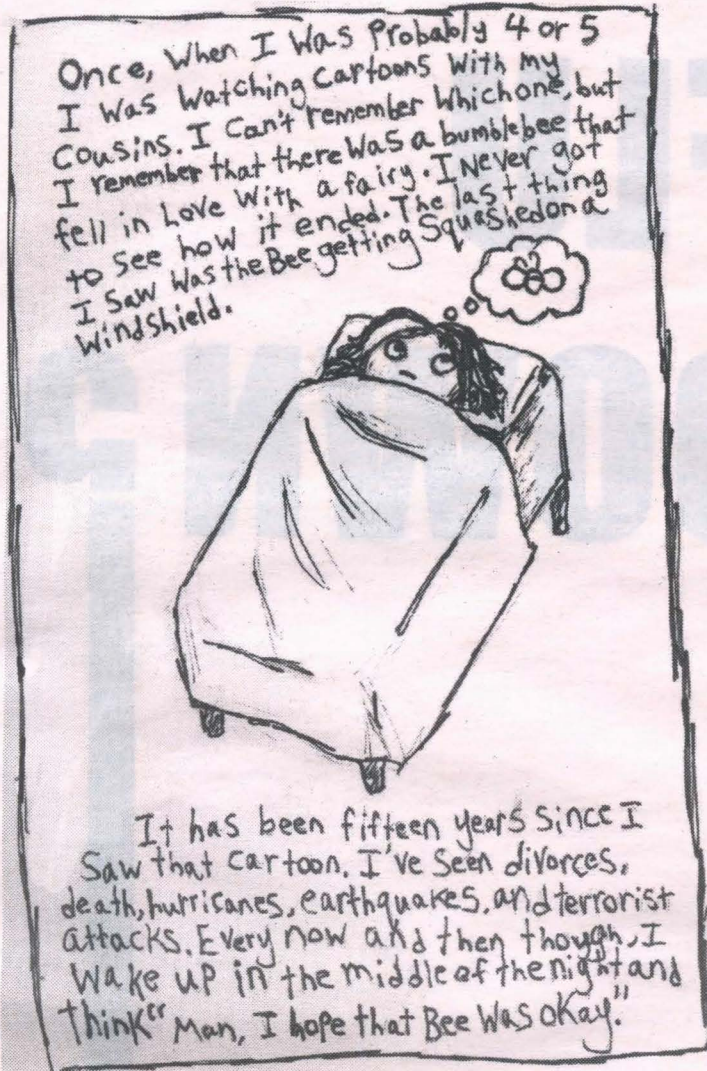 Once, When I Was Probably 4 or 5
I Was Watching Cartoons With my
Cousins. I Can't remember Which one, but
I remember that there Was a bumblebee that
fell in Love With a fairy. I Never got
to see how it ended. The last thing
I Saw Was the Bee getting Squashed on a
Windshield.
It has been fifteen years Since I
Saw that cartoon. I've Seen divorces,
death, hurricanes, earthquakes, and terrorist
attacks. Every now and then though, I
Wake up in the middle of the night and
think "Man, I hope that Bee Was okay."